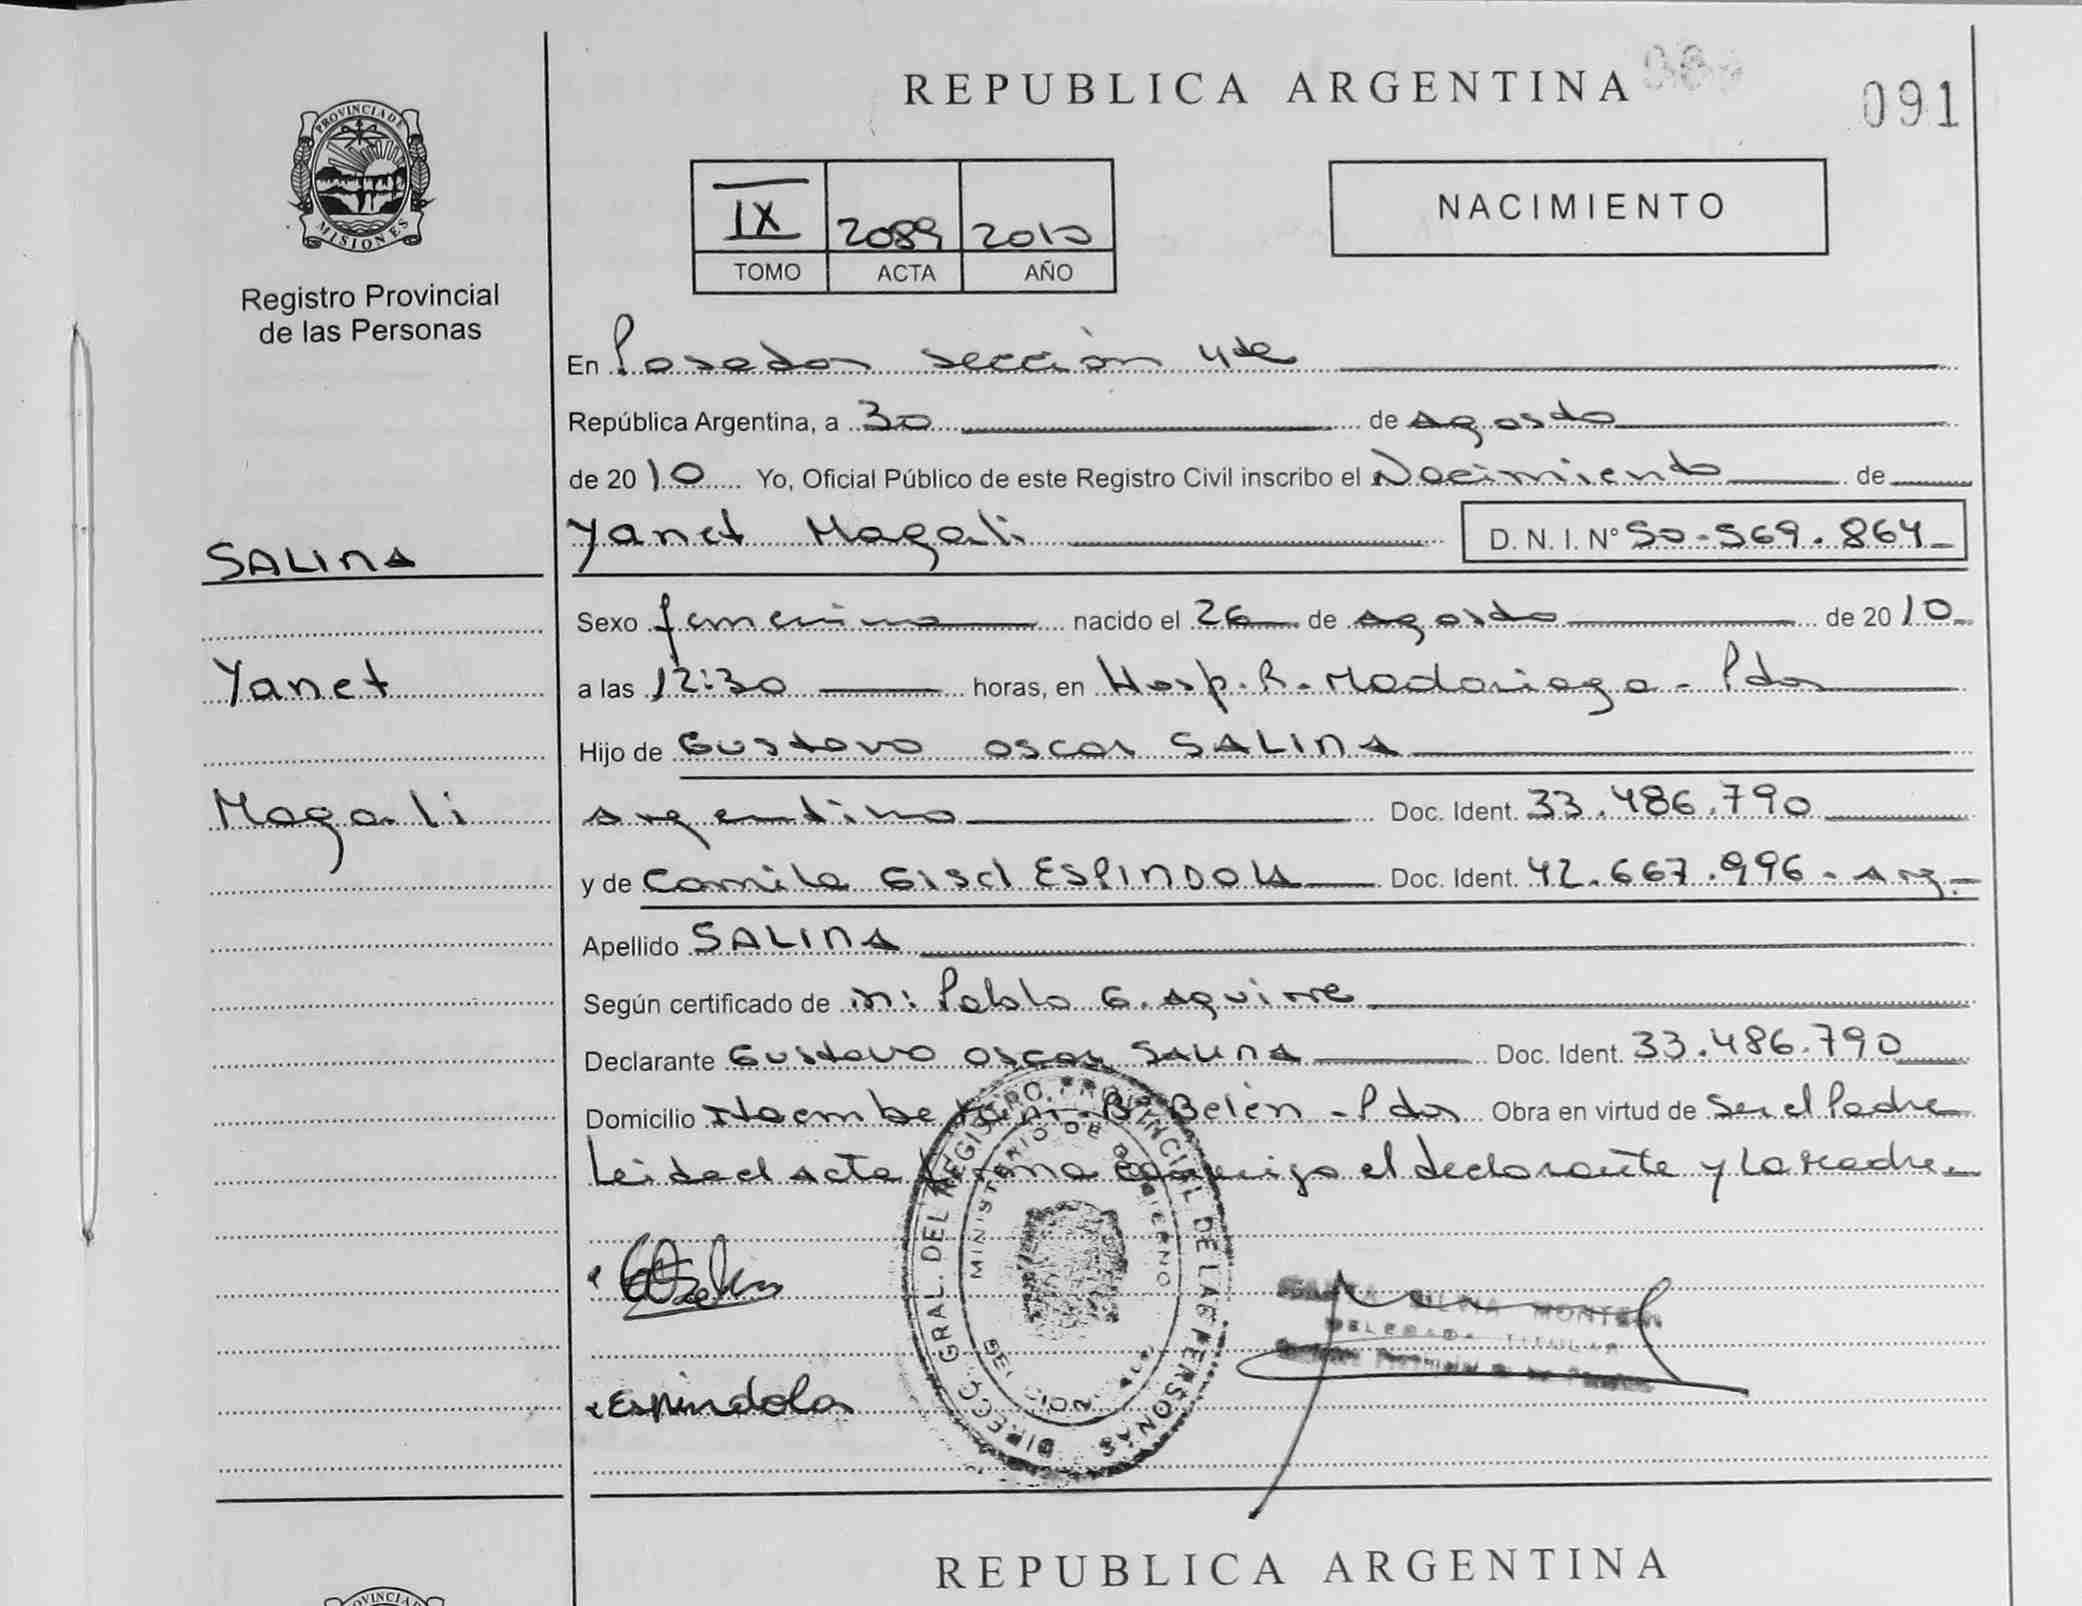 REPUBLICA ARGENTINA
091
PROVINCIA DE
MISIONES
Registro Provincial
de las Personas
IX 2089 2010
TOMO ACTA AÑO
NACIMIENTO
En Posadas sección 4ta
República Argentina, a 30 de Agosto
de 2010 Yo, Oficial Público de este Registro Civil inscribo el Nacimiento de
SALINA
Yanet Magali D. N. I. Nº 50.569.864
Sexo femenino nacido el 26 de Agosto de 2010
Yanet
a las 12:30 horas, en Hosp. R. Madariaga - Pdas
Hijo de Gustavo Oscar SALINA
Magali
Argentino Doc. Ident. 33.486.790
y de Camila Gisel ESPINDOLA Doc. Ident. 42.667.996 - Arg.
Apellido SALINA
Según certificado de Pablo G. Aguirre
Declarante Gustavo Oscar SALINA Doc. Ident. 33.486.790
Domicilio Itaembe Bº Belén - Pdas Obra en virtud de Ser el Padre
Leida el Acta firma conmigo el declarante y la Madre
DIRECC. GRAL. DEL REGISTRO PROVINCIAL DE LAS PERSONAS
MINISTERIO DE GOBIERNO
DELEGADA TITULAR
Espindola
REPUBLICA ARGENTINA